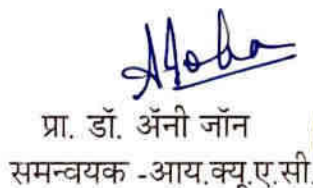 प्रा. डॉ. ॲनी जॉन
समन्वयक -आय.क्यू.ए.सी.